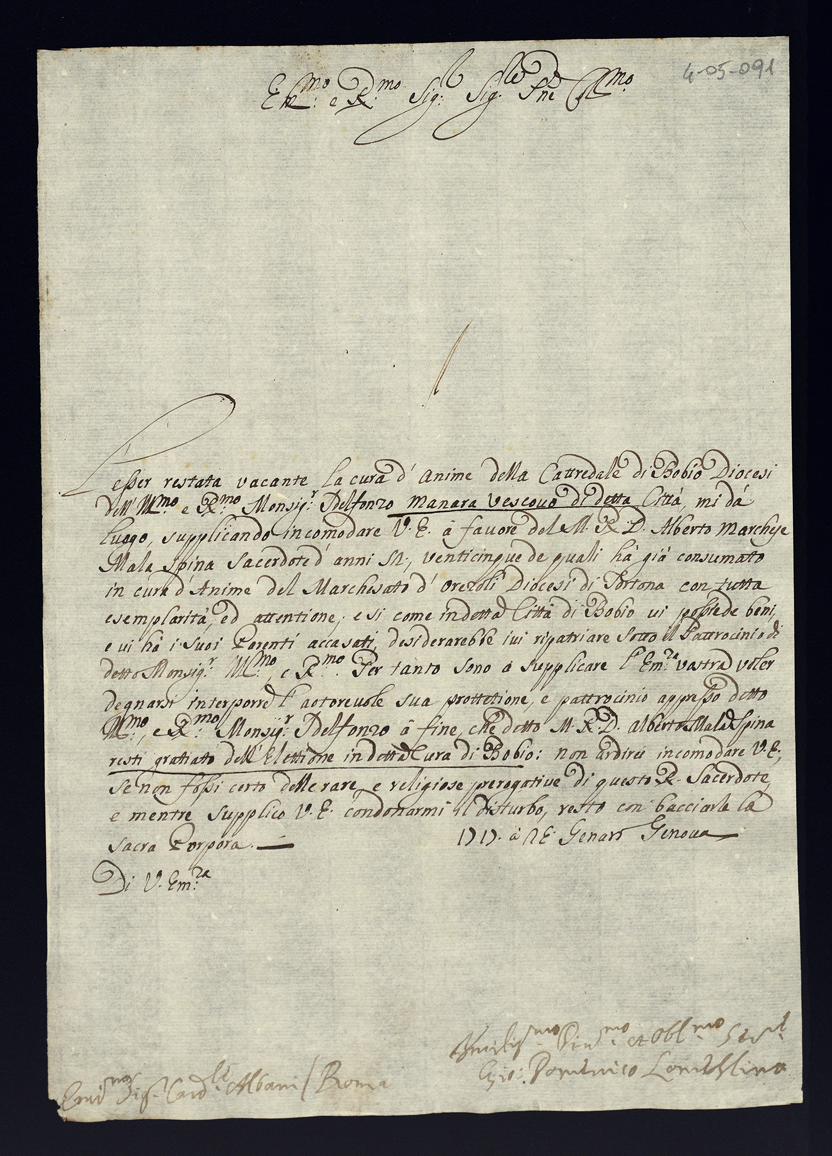 4-05-091
Em:mo e R:mo Sig:r Sig:r Pne
L'esser restata vacante la cura d'Anime della Cattredale di Bobio Diocesi
dell' Ill:mo e R:mo Monsig:r Ildelfonzo Manara Vescovo di detta Città, mi dà
luogo, supplicando incomodare V. E. à favore del M. R. D. Alberto Marchese
Mala Spina Sacerdote d'anni venticinque de quali hà già consumato
in cura d'Anime del Marchesato d'Orezoli Diocesi di Tortona con tutta
esemplarità, ed attentione, e si come in detta Città di Bobio vi possiede beni,
e vi hà i suoi Parenti accasati, desiderarebbe ivi ripatriare sotto il Pattrocinio di
detto Monsig:r Ill:mo, e R:mo Per tanto sono à supplicare l'Em:za vostra voler
degnarsi interporre l'autorevole sua prottetione, e pattrocinio appresso detto
Ill:mo, e R:mo Monsig:r Ildelfonzo à fine, che detto M. R. D. Alberto Mala Spina
resti gratiato dell'Elettione in detta Cura di Bobio: non ardirei incomodare V. E.,
se non fossi certo delle rare, e religiose prerogative di questo R. Sacerdote,
e mentre supplico V. E. condonarmi il disturbo, resto con bacciarle la
Sacra Porpora. Genaro Genova
Di V. Em:za
Humiliss:mo et Obl:mo
Gio: Domenico Lomellino
Emi:mo Sig:r Card:le Albani / Roma